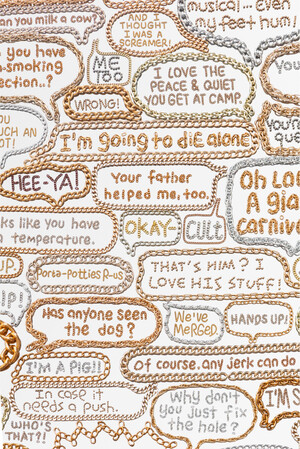 musical... even
my feet hum!
an you milk a cow?
AND
THOUGHT
I WAS A
SCREAMER!
you have
-smoking
ection..?
ME
TOO
I LOVE THE
PEACE & QUIET
YOU GET AT CAMP.
WRONG!
I'm going to die alone
HEE-YA!
Your father
helped me, too.
Oh Lo
A gia
carniv
ks like you have
a temperature.
OKAY-
Cult
UP
Porta-Potties R-us
THAT'S HIM? I
LOVE HIS STUFF!
UP!!
Has anyone seen
the dog?
We've
MERGED.
HANDS UP!
I'M A PIG!!
Of course, any jerk can do
In case it
needs a push.
Why don't
you just fix
the hole?
I'M S
WHO'S
THAT?!